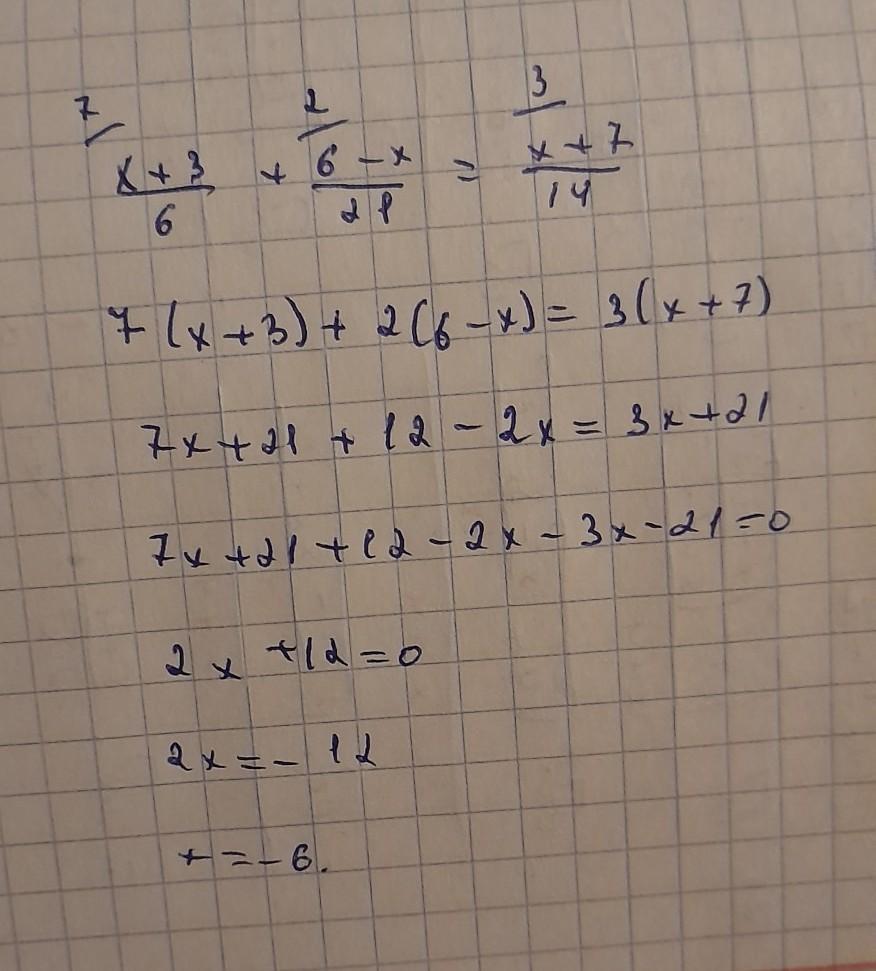 7/ 2/ 3/
(x + 3)/6 + (6 - x)/21 = (x + 7)/14
7(x+3)+ 2(6-x)= 3(x+7)
7x+21 + 12 - 2x = 3x+21
7x+21+12-2x-3x-21=0
2x +12=0
2x=- 12
x=-6.